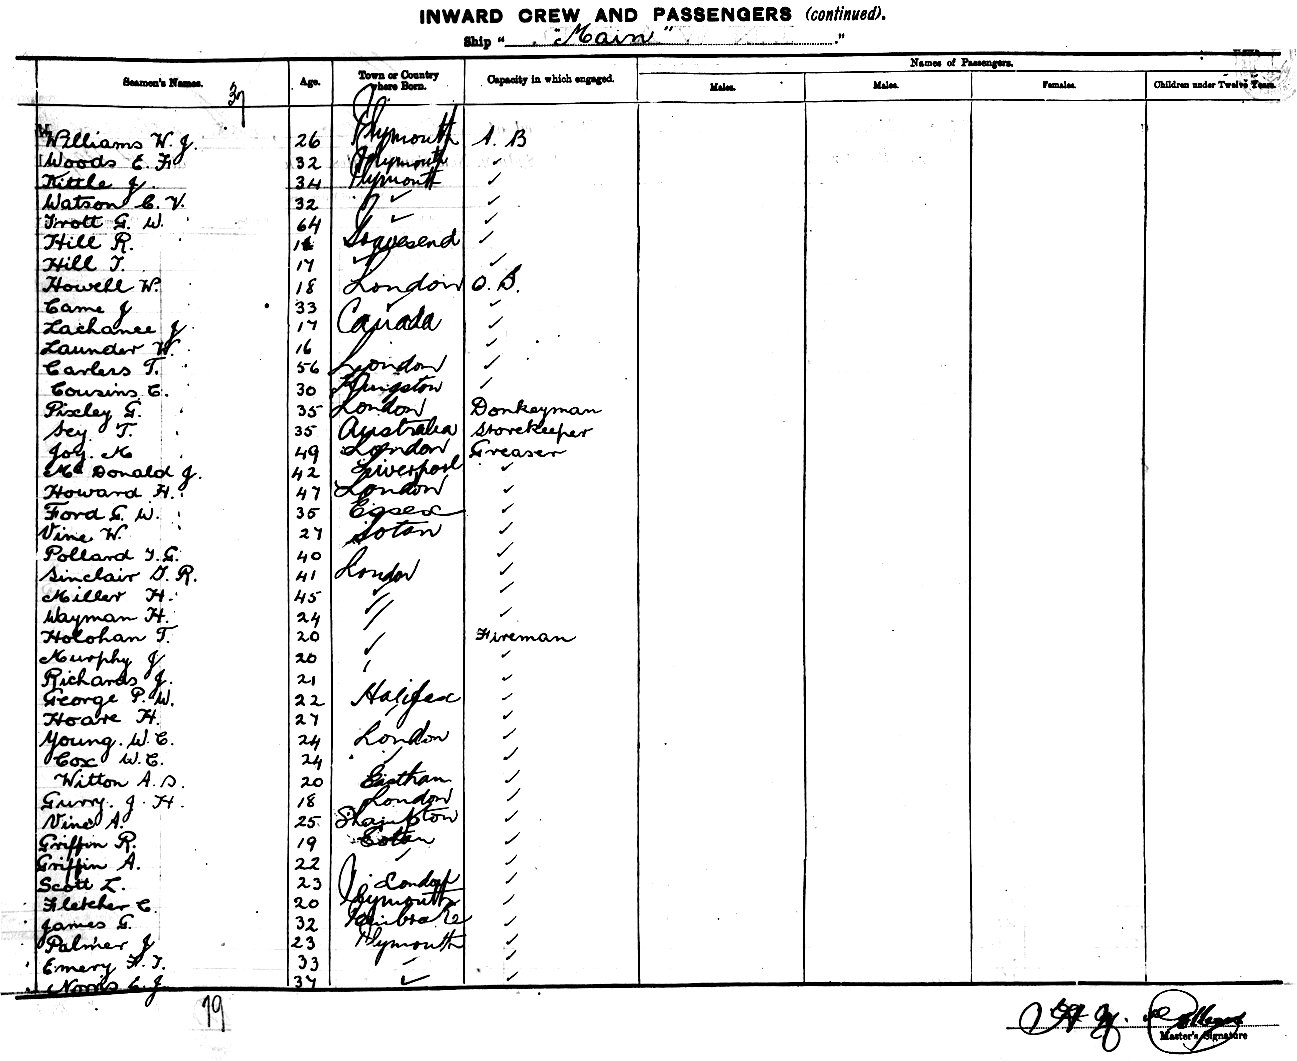 INWARD CREW AND PASSENGERS (continued).
Ship "Main"
Names of Passengers.
Seamen's Names. Age. Town or Country where Born. Capacity in which engaged. Males. Males. Females. Children under Twelve Years.
37
Williams W. J. 26 Plymouth A. B
Woods E. F 32 Plymouth ✓
Kittle J. 34 Plymouth ✓
Watson C. V. 32 ✓ ✓
Trott G. W. 64 ✓ ✓
Hill R. 16 Gravesend ✓
Hill T. 17 ✓ ✓
Howell W. 18 London O. B.
Came J 33 ✓ ✓
Lachance J. 17 Canada ✓
Launder W. 16 ✓
Carless T. 56 London ✓
Cousins C. 30 Kingston ✓
Pixley G. 35 London Donkeyman
Sey T. 35 Australia Storekeeper
Joy. M 49 London Greaser
McDonald J. 42 Liverpool ✓
Howard H. 47 London ✓
Ford G. W. 35 Essex ✓
Vine W. 27 Soton ✓
Pollard T. G. 40 ✓
Sinclair D. R. 41 London ✓
Miller H. 45 ✓ ✓
Wayman H. 24 " ✓
Holohan T. 20 ✓ Fireman
Murphy J 20 ✓
Richards J. 21 ✓
George P. W. 22 Halifax ✓
Hoare H. 27 ✓ ✓
Young. W. C. 24 London ✓
Cox W. C. 24 ✓ ✓
Witton A. D. 20 Eastham ✓
Gurry. J. H. 18 London ✓
Vine A. 25 Shampton ✓
Griffin R. 19 Soton ✓
Griffin A. 22 ✓ ✓
Scott L. 23 London ✓
Fletcher C. 20 Plymouth ✓
James G. 32 Pembroke ✓
Palmer J 23 Plymouth ✓
Emery F. T. 33 ✓ ✓
Norris C. J. 37 ✓ ✓
79
Master's Signature